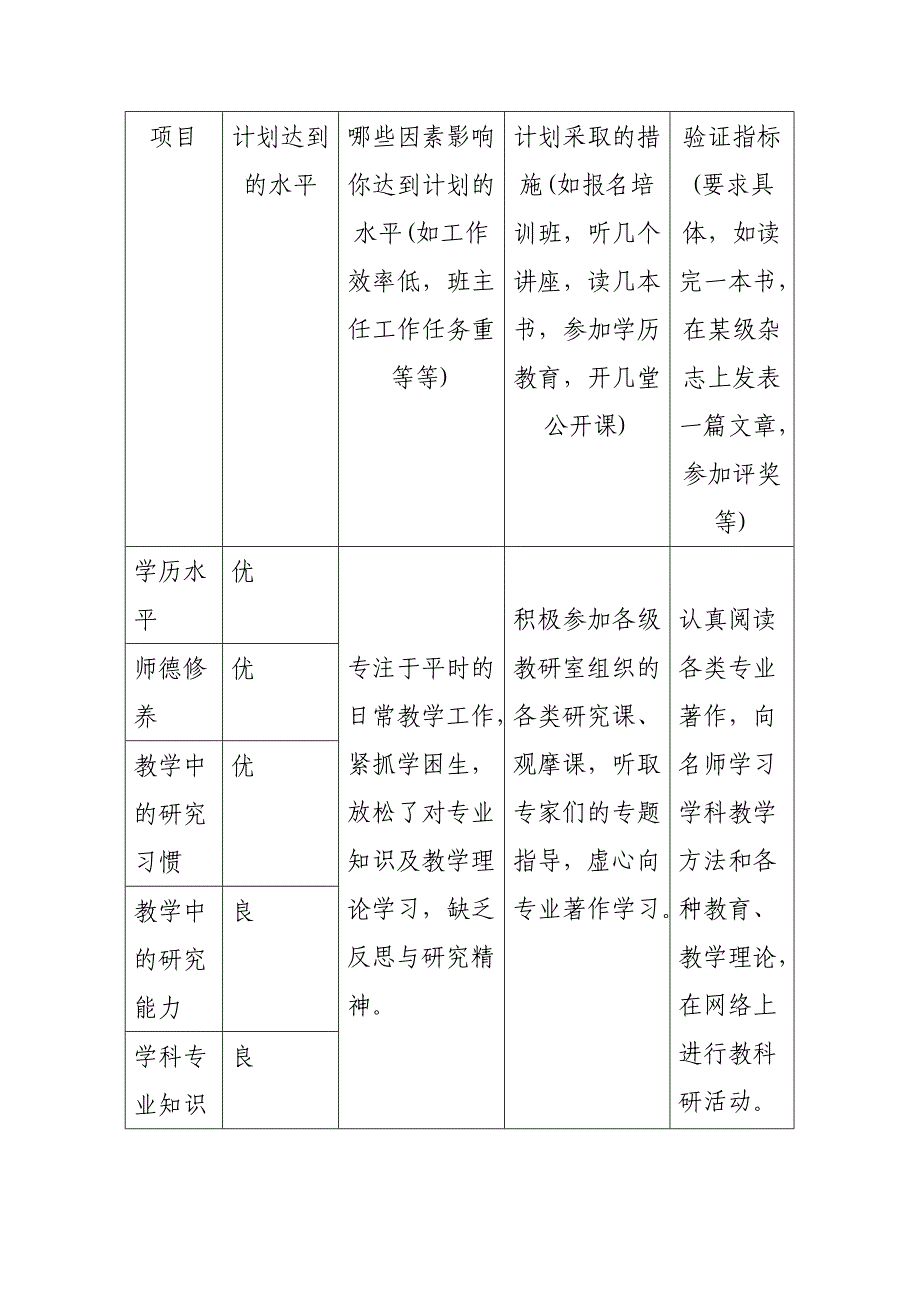 项目
计划达到
的水平
哪些因素影响
你达到计划的
水平(如工作
效率低，班主
任工作任务重
等等)
计划采取的措
施(如报名培
训班，听几个
讲座，读几本
书，参加学历
教育，开几堂
公开课)
验证指标
(要求具
体，如读
完一本书，
在某级杂
志上发表
一篇文章，
参加评奖
等)
学历水
平
优
师德修
养
优
教学中
的研究
习惯
优
教学中
的研究
能力
良
学科专
业知识
良
专注于平时的
日常教学工作，
紧抓学困生，
放松了对专业
知识及教学理
论学习，缺乏
反思与研究精
神。
积极参加各级
教研室组织的
各类研究课、
观摩课，听取
专家们的专题
指导，虚心向
专业著作学习。
认真阅读
各类专业
著作，向
名师学习
学科教学
方法和各
种教育、
教学理论，
在网络上
进行教科
研活动。